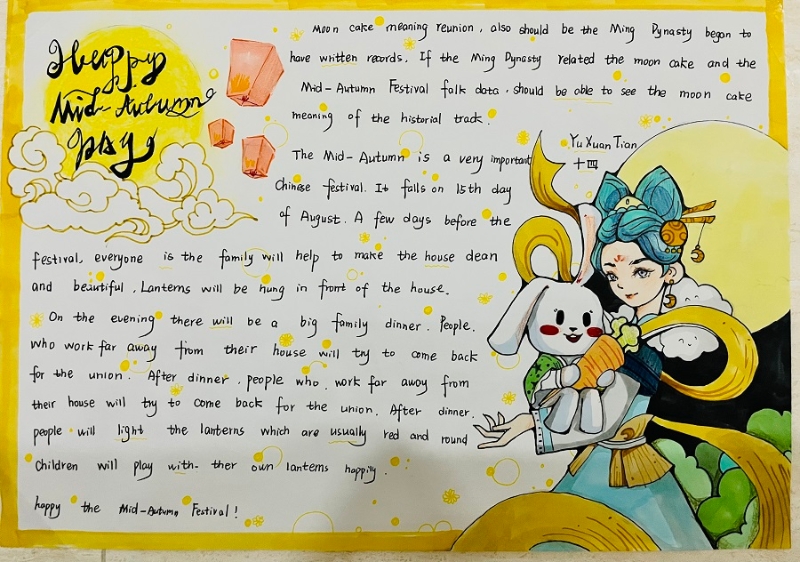 Happy
Mid-Autumn
Day
Moon cake meaning reunion, also should be the Ming Dynasty began to
have written records. If the Ming Dynasty related the moon cake and the
Mid-Autumn Festival folk data, should be able to see the moon cake
meaning of the historial track.
Yu Xuan Tian
十四
The Mid-Autumn is a very important
Chinese festival. It falls on 15th day
of August. A few days before the
festival, everyone is the family will help to make the house dean
and beautiful. Lanterns will be hung in front of the house.
On the evening there will be a big family dinner. People.
who work far away from their house will try to come back
for the union. After dinner, people who work far away from
their house will try to come back for the union. After dinner.
people will light the lanterns which are usually red and round
Children will play with ther own lantems happiy.
happy the Mid-Autumn Festival!